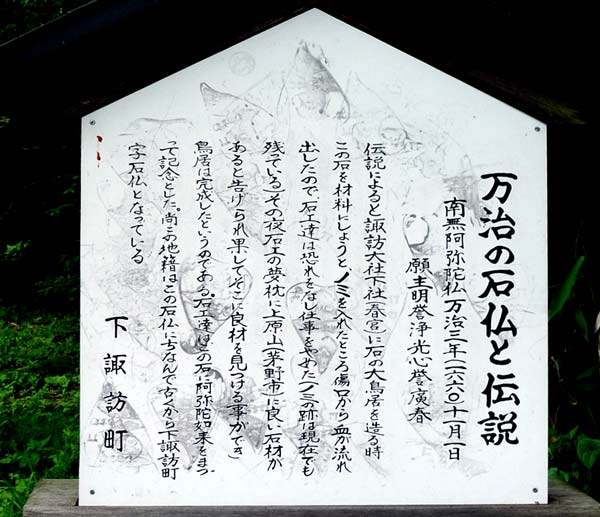 万治の石仏と伝説
南無阿弥陀仏 万治三年(一六六〇)十一月一日
願主 明誉浄光 心誉廣春
伝説によると、諏訪大社下社(春宮)に石の大鳥居を造る時
この石を材料にしようと、ノミを入れたところ傷口から血が流れ
出したので、石工達は恐れをなし仕事をやめた(ノミの跡は現在でも
残ている)その夜石工の夢枕に上原山(茅野市)に良い石材が
あると告げられ果してそこに良材を見つける事ができ
鳥居は完成したというのである。石工達はこの石に阿弥陀如来をまつ
って記念とした。尚この地籍はこの石仏にちなんで古くから下諏訪町
字石仏となっている
下諏訪町